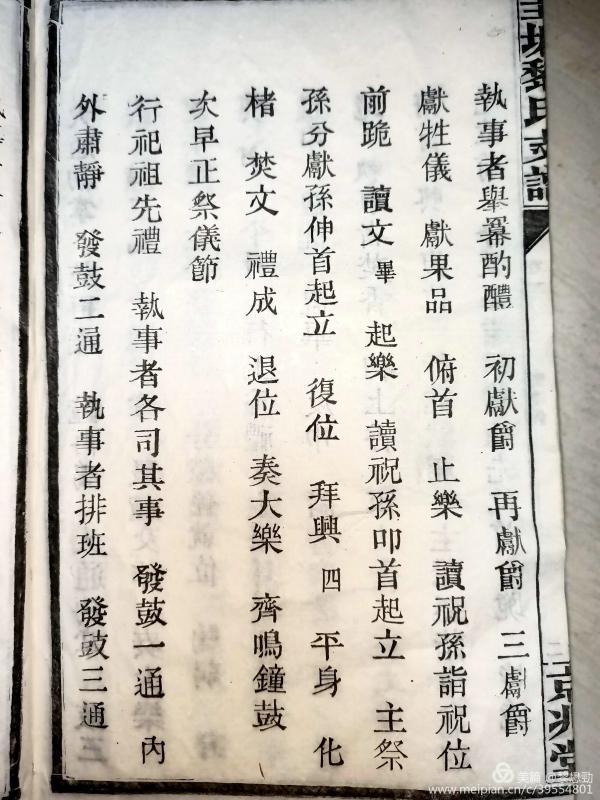 執事者舉冪酌醴 初獻爵 再獻爵 三獻爵
獻牲儀 獻果品 俯首 止樂 讀祝孫詣祝位
前跪 讀文畢 起樂 讀祝孫叩首起立 主祭
孫分獻孫伸首起立 復位 拜興四 平身 化
楮 焚文 禮成 退位 奏大樂 齊鳴鐘鼓
次早正祭儀節
行祀祖先禮 執事者各司其事 發鼓一通 內
外肅靜 發鼓二通 執事者排班 發鼓三通
氏支譜
京兆堂
美篇
www.meipian.cn/c/39554801